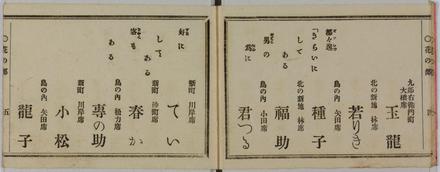 〇花の都
九郎右衛門町
大梯席
玉龍
北の新地 林席
若りき
都々逸
「きらいに
島の内 矢田席
種子
してある
北の新地 林席
福助
男の
為に
島の内 小田席
君つる
好に
新町 川岸席
てい
してある
客も
新町 席
春か
ある
島の内 席
専の助
新町 川岸席
小松
島の内 矢田席
龍子
〇花の都
五